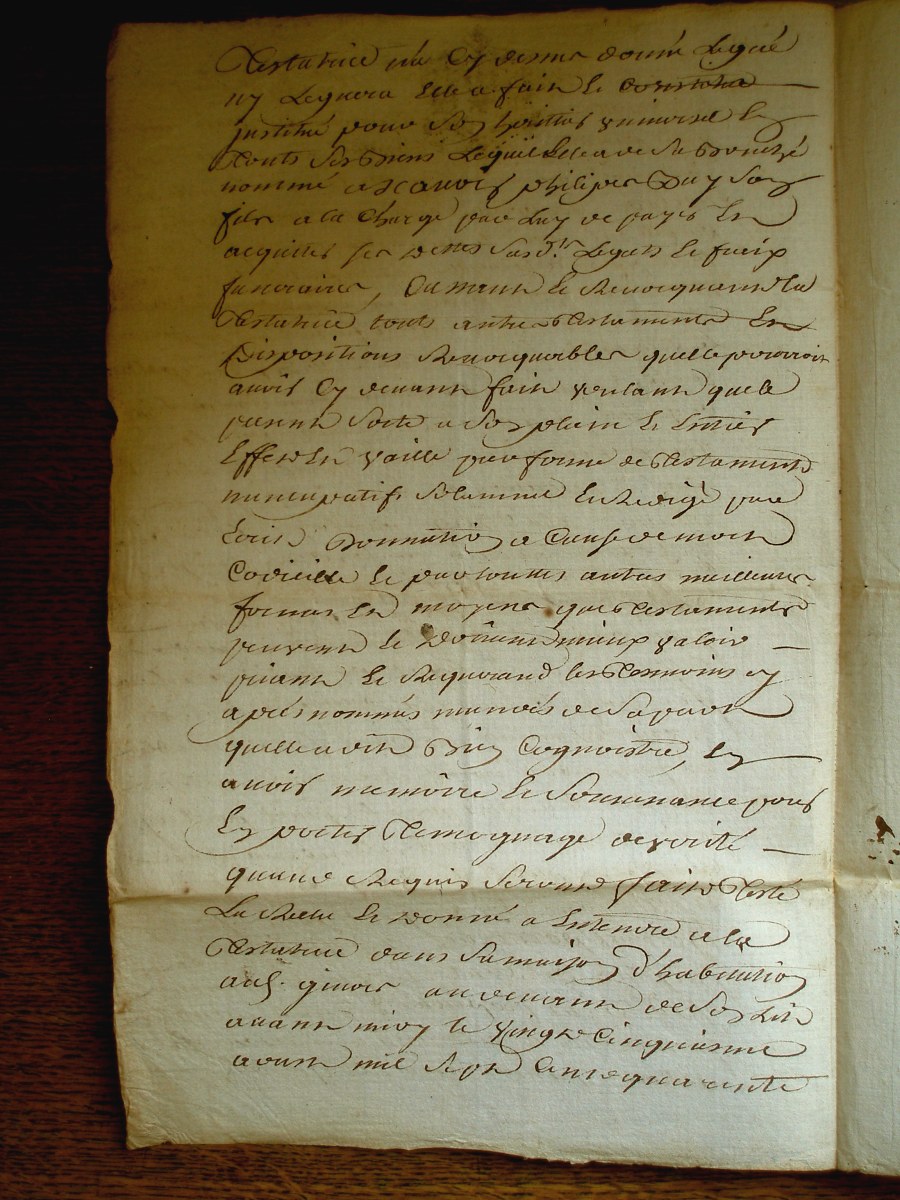 Testatrice n'a Cy dessus donné Legué
ny Leguera Elle a fait Et
jnstitué pour Son hoiritier universel En
touts Ses Biens Lequel Elle a de Sa Bouche
nommé philipes Duy Son
fils a la Charge par Luy de payer Et
acquiter ses dettes Susd.ts Legats Et fraix
funeraires, Cassant Et Revocquant Lad
Testatrice touts autres Testaments Et
Dispositions Revocquables quelle pourroit
avoir Cy devant fait voulant que le
present Sorte a Son plain Et Entier
Effet Et Vaille par forme de Testament
nuncupatif Solemne Et Redigé par
Ecrit Donnation a Cause de mort
Codicille Et par toutes autres meilleures
formes Et moyens que Testaments
peuvent Et doivent mieux valoir
priant Et Requerand les Tesmoins cy
aprés nommés mandés de Sa part
quelle a dit Bien Cognoistre, d'en
avoir memoire Et Souvenance pour
En porter Temognage de verité
quand Requis Seront fait
Leu Relu Et donné a Entendre a la
Testatrice dans Sa maison d'habitation
aud. au devant de Son Lit
avant midy le Vingt Cinquieme
aoust mil Sept Cent quarante